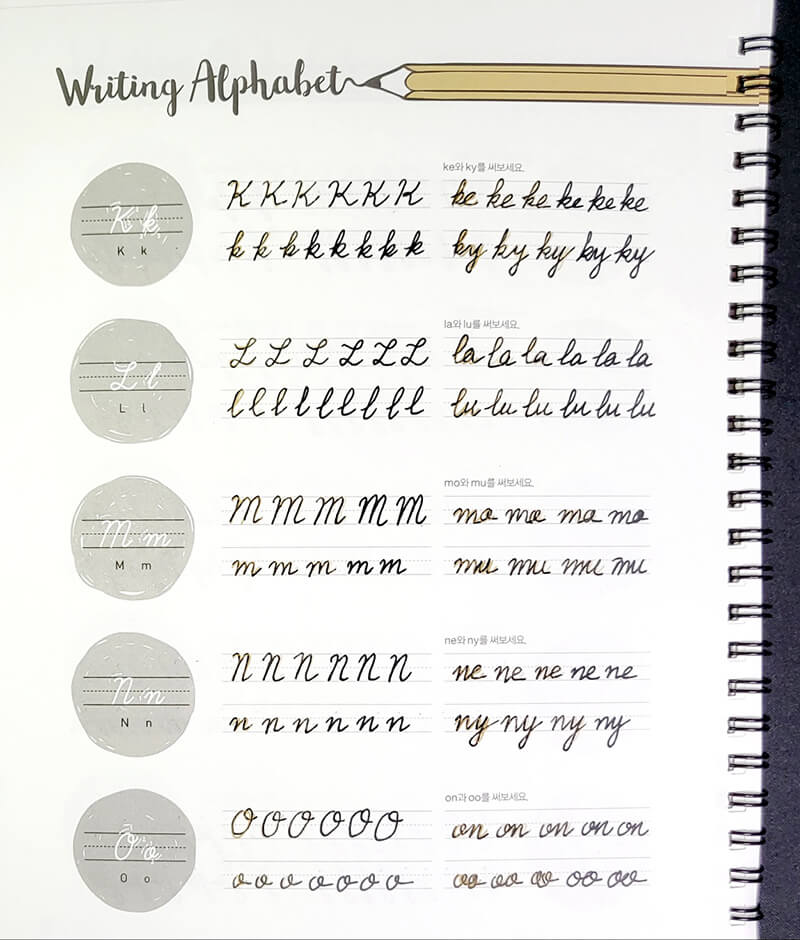 Writing Alphabet
K k
K k
K K K K K K
k k k k k k k k
ke와 ky를 써보세요.
ke ke ke ke ke ke
ky ky ky ky ky
L l
L l
L L L L L L
l l l l l l l l l
la와 lu를 써보세요.
la la la la la la
lu lu lu lu lu lu
M m
M m
M M M M M
m m m m m
mo와 mu를 써보세요.
mo mo mo mo
mu mu mu mu
N n
N n
N N N N N N
n n n n n n
ne와 ny를 써보세요.
ne ne ne ne ne
ny ny ny ny
O o
O o
O O O O O O
o o o o o o o
on과 oo를 써보세요.
on on on on on
oo oo oo oo oo